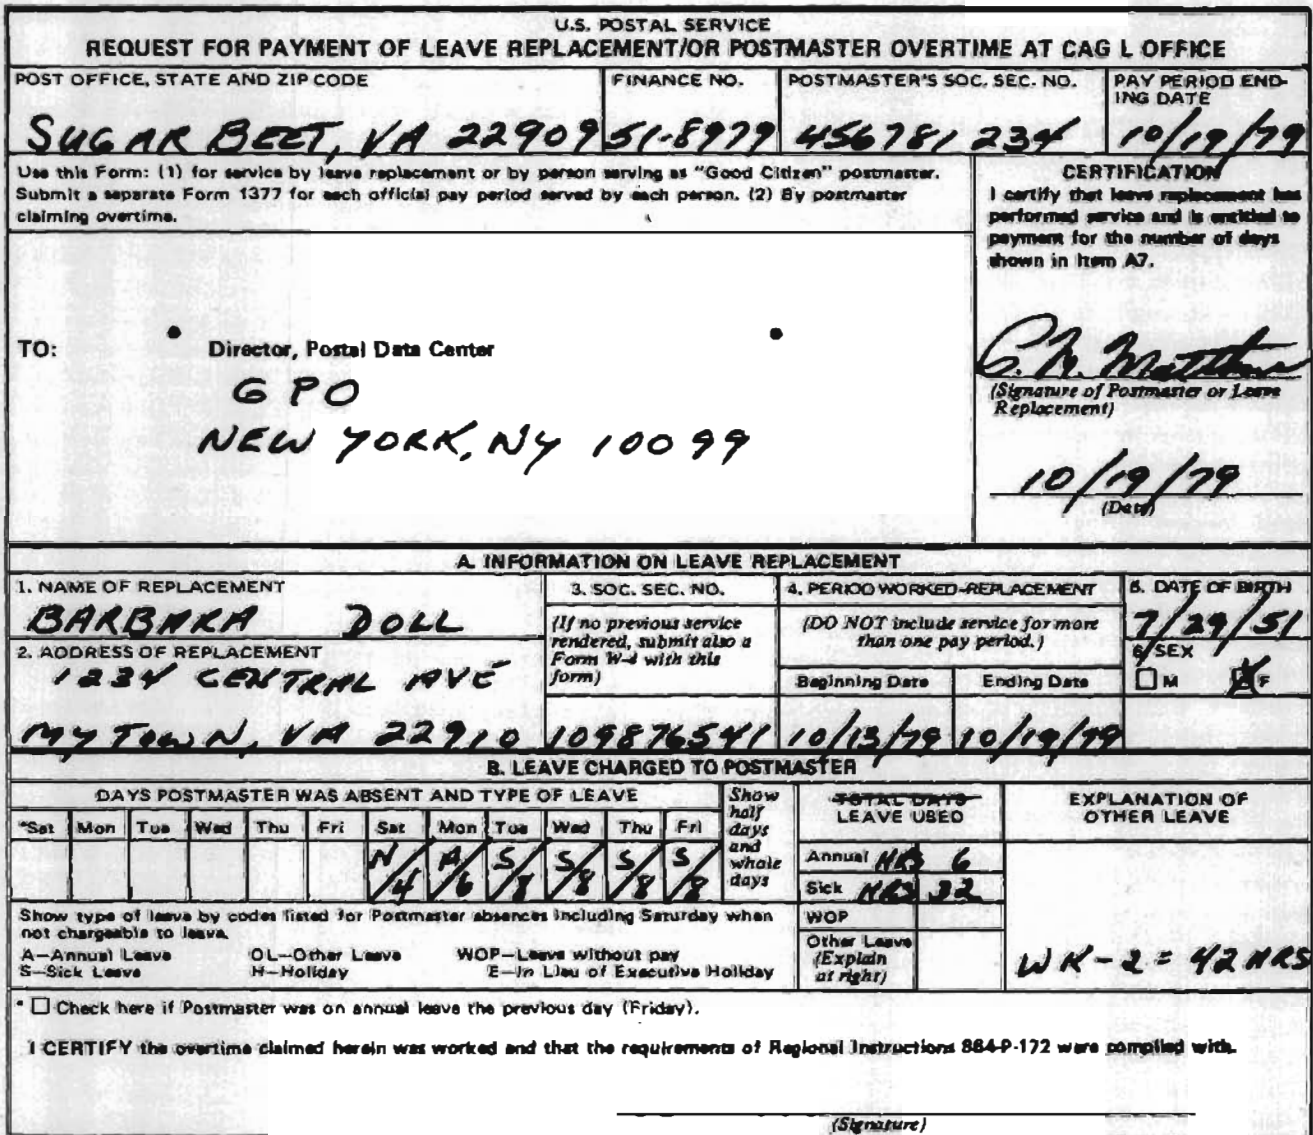 U.S. POSTAL SERVICE
REQUEST FOR PAYMENT OF LEAVE REPLACEMENT/OR POSTMASTER OVERTIME AT CAG L OFFICE
POST OFFICE, STATE AND ZIP CODE FINANCE NO. POSTMASTER'S SOC. SEC. NO. PAY PERIOD END-
ING DATE
SUGAR BEET, VA 22909 51-8979 456781234 10/19/79
Use this Form: (1) for service by leave replacement or by person serving as "Good Citizen" postmaster.
Submit a separate Form 1377 for each official pay period served by each person. (2) By postmaster
claiming overtime.
CERTIFICATION
I certify that leave replacement has
performed service and is entitled to
payment for the number of days
shown in Item A7.
TO: Director, Postal Data Center
GPO
NEW YORK, NY 10099
(Signature of Postmaster or Leave
Replacement)
10/19/79
(Date)
A. INFORMATION ON LEAVE REPLACEMENT
1. NAME OF REPLACEMENT
BARBARA DOLL
2. ADDRESS OF REPLACEMENT
1234 CENTRAL AVE
MYTOWN, VA 22910
3. SOC. SEC. NO.
(If no previous service
rendered, submit also a
Form W-4 with this
form)
109876541
4. PERIOD WORKED-REPLACEMENT
(DO NOT include service for more
than one pay period.)
Beginning Date Ending Date
10/13/79 10/19/79
5. DATE OF BIRTH
7/29/51
6. SEX
M X F
B. LEAVE CHARGED TO POSTMASTER
DAYS POSTMASTER WAS ABSENT AND TYPE OF LEAVE
*Sat Mon Tue Wed Thu Fri Sat Mon Tue Wed Thu Fri
N/4 A/6 S/8 S/8 S/8 S/8
Show
half
days
and
whole
days
TOTAL DAYS
LEAVE USED
Annual HRS 6
Sick HRS 32
WOP
Other Leave
(Explain
at right)
EXPLANATION OF
OTHER LEAVE
WK-2 = 42 HRS
Show type of leave by codes listed for Postmaster absences including Saturday when
not chargeable to leave.
A—Annual Leave OL—Other Leave WOP—Leave without pay
S—Sick Leave H—Holiday E—In Lieu of Executive Holiday
* Check here if Postmaster was on annual leave the previous day (Friday).
I CERTIFY the overtime claimed herein was worked and that the requirements of Regional Instructions 884-P-172 were complied with.
(Signature)